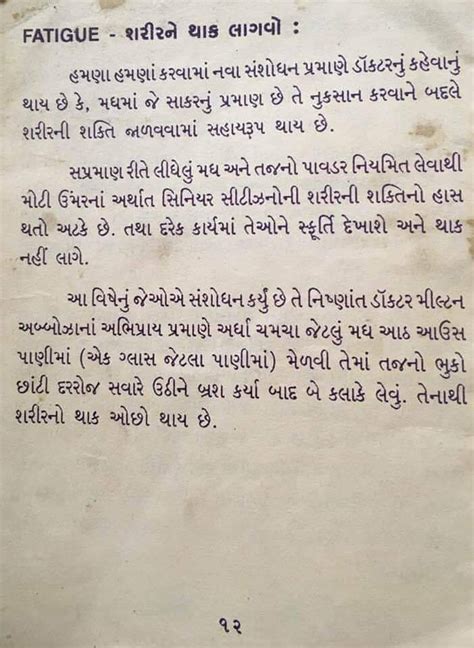 FATIGUE - શરીરને થાક લાગવો :
હમણા હમણાં કરવામાં નવા સંશોધન પ્રમાણે ડૉકટરનું કહેવાનું
થાય છે કે, મધમાં જે સાકરનું પ્રમાણ છે તે નુકસાન કરવાને બદલે
શરીરની શક્તિ જાળવવામાં સહાયરૂપ થાય છે.
સપ્રમાણ રીતે લીધેલું મધ અને તજનો પાવડર નિયમિત લેવાથી
મોટી ઉંમરનાં અર્થાત સિનિયર સીટીઝનોની શરીરની શક્તિનો હાસ
થતો અટકે છે. તથા દરેક કાર્યમાં તેઓને સ્ફૂર્તિ દેખાશે અને થાક
નહીં લાગે.
આ વિષેનું જેઓએ સંશોધન કર્યું છે તે નિષ્ણાંત ડૉકટર મીલ્ટન
અબ્બોઝાનાં અભિપ્રાય પ્રમાણે અર્ધા ચમચા જેટલું મધ આઠ આઉસ
પાણીમાં (એક ગ્લાસ જેટલા પાણીમાં) મેળવી તેમાં તજનો ભુકો
છાંટી દરરોજ સવારે ઉઠીને બ્રશ કર્યા બાદ બે કલાકે લેવું. તેનાથી
શરીરનો થાક ઓછો થાય છે.
૧૨